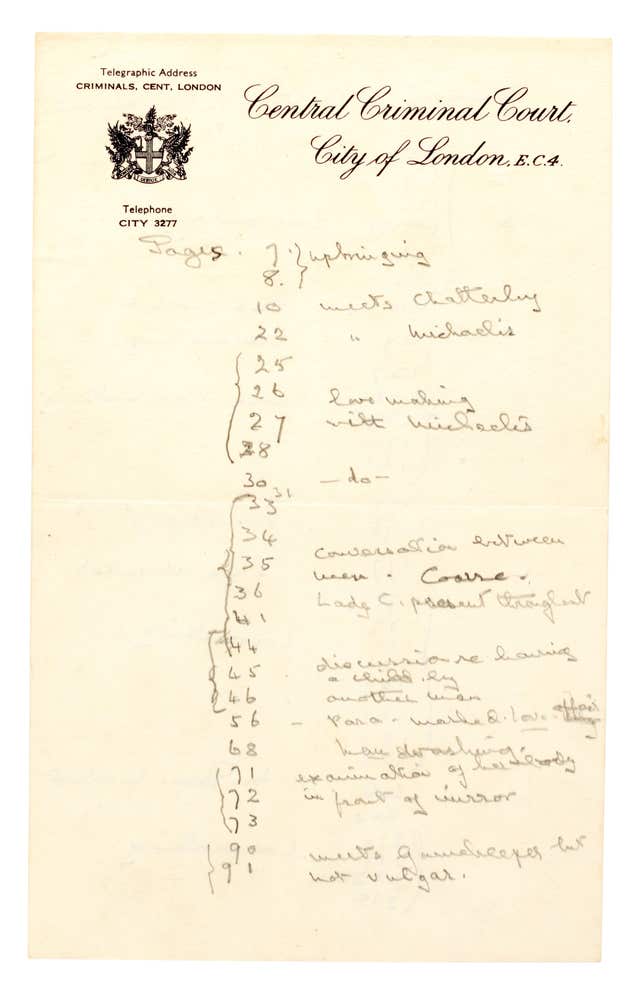 Telegraphic Address
CRIMINALS, CENT, LONDON
Central Criminal Court,
City of London, E.C.4.
Telephone
CITY 3277
Pages. 7. } upbringing
8.
10 meets Chatterley
22 " Michaelis
25
26 love making
27 with Michaelis
28
30 — do —
33 31
34
35 conversation between
men. Coarse.
36 Lady C. present throughout
41
44
45 discussion re having
a child by
46 another man
56 - Para. marked. love affair
68 Man washing.
71 examination of her body
72 in front of mirror
73
90 meets Gamekeeper but
91 not vulgar.